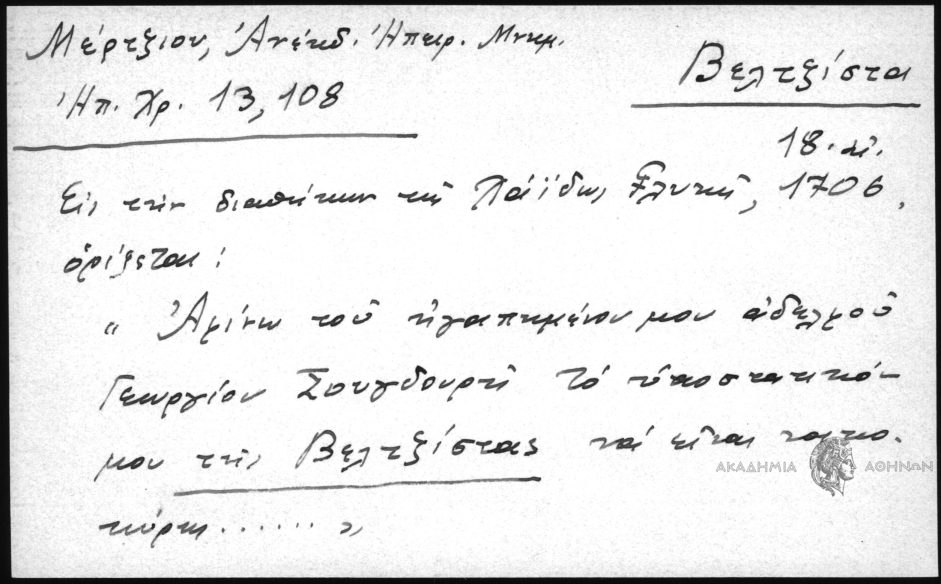 Μέρτζιου, Ἀνέκδ. Ἠπειρ. Μνημ.
Ἠπ. Χρ. 13, 108
Βελτζίστα
18. αἰ.
Εἰς τὴν διαθήκην τῆς Χάϊδως Γλυκῆ, 1706,
ὁρίζεται:
"Ἀφίνω τοῦ ἠγαπημένου μου ἀδελφοῦ
Γεωργίου Σουγδουρῆ τὸ ὑποστατικό-
μου τῆς Βελτζίστας νά εἶναι νοικο-
κύρης...... »
ΑΚΑΔΗΜΙΑ ΑΘΗΝΩΝ